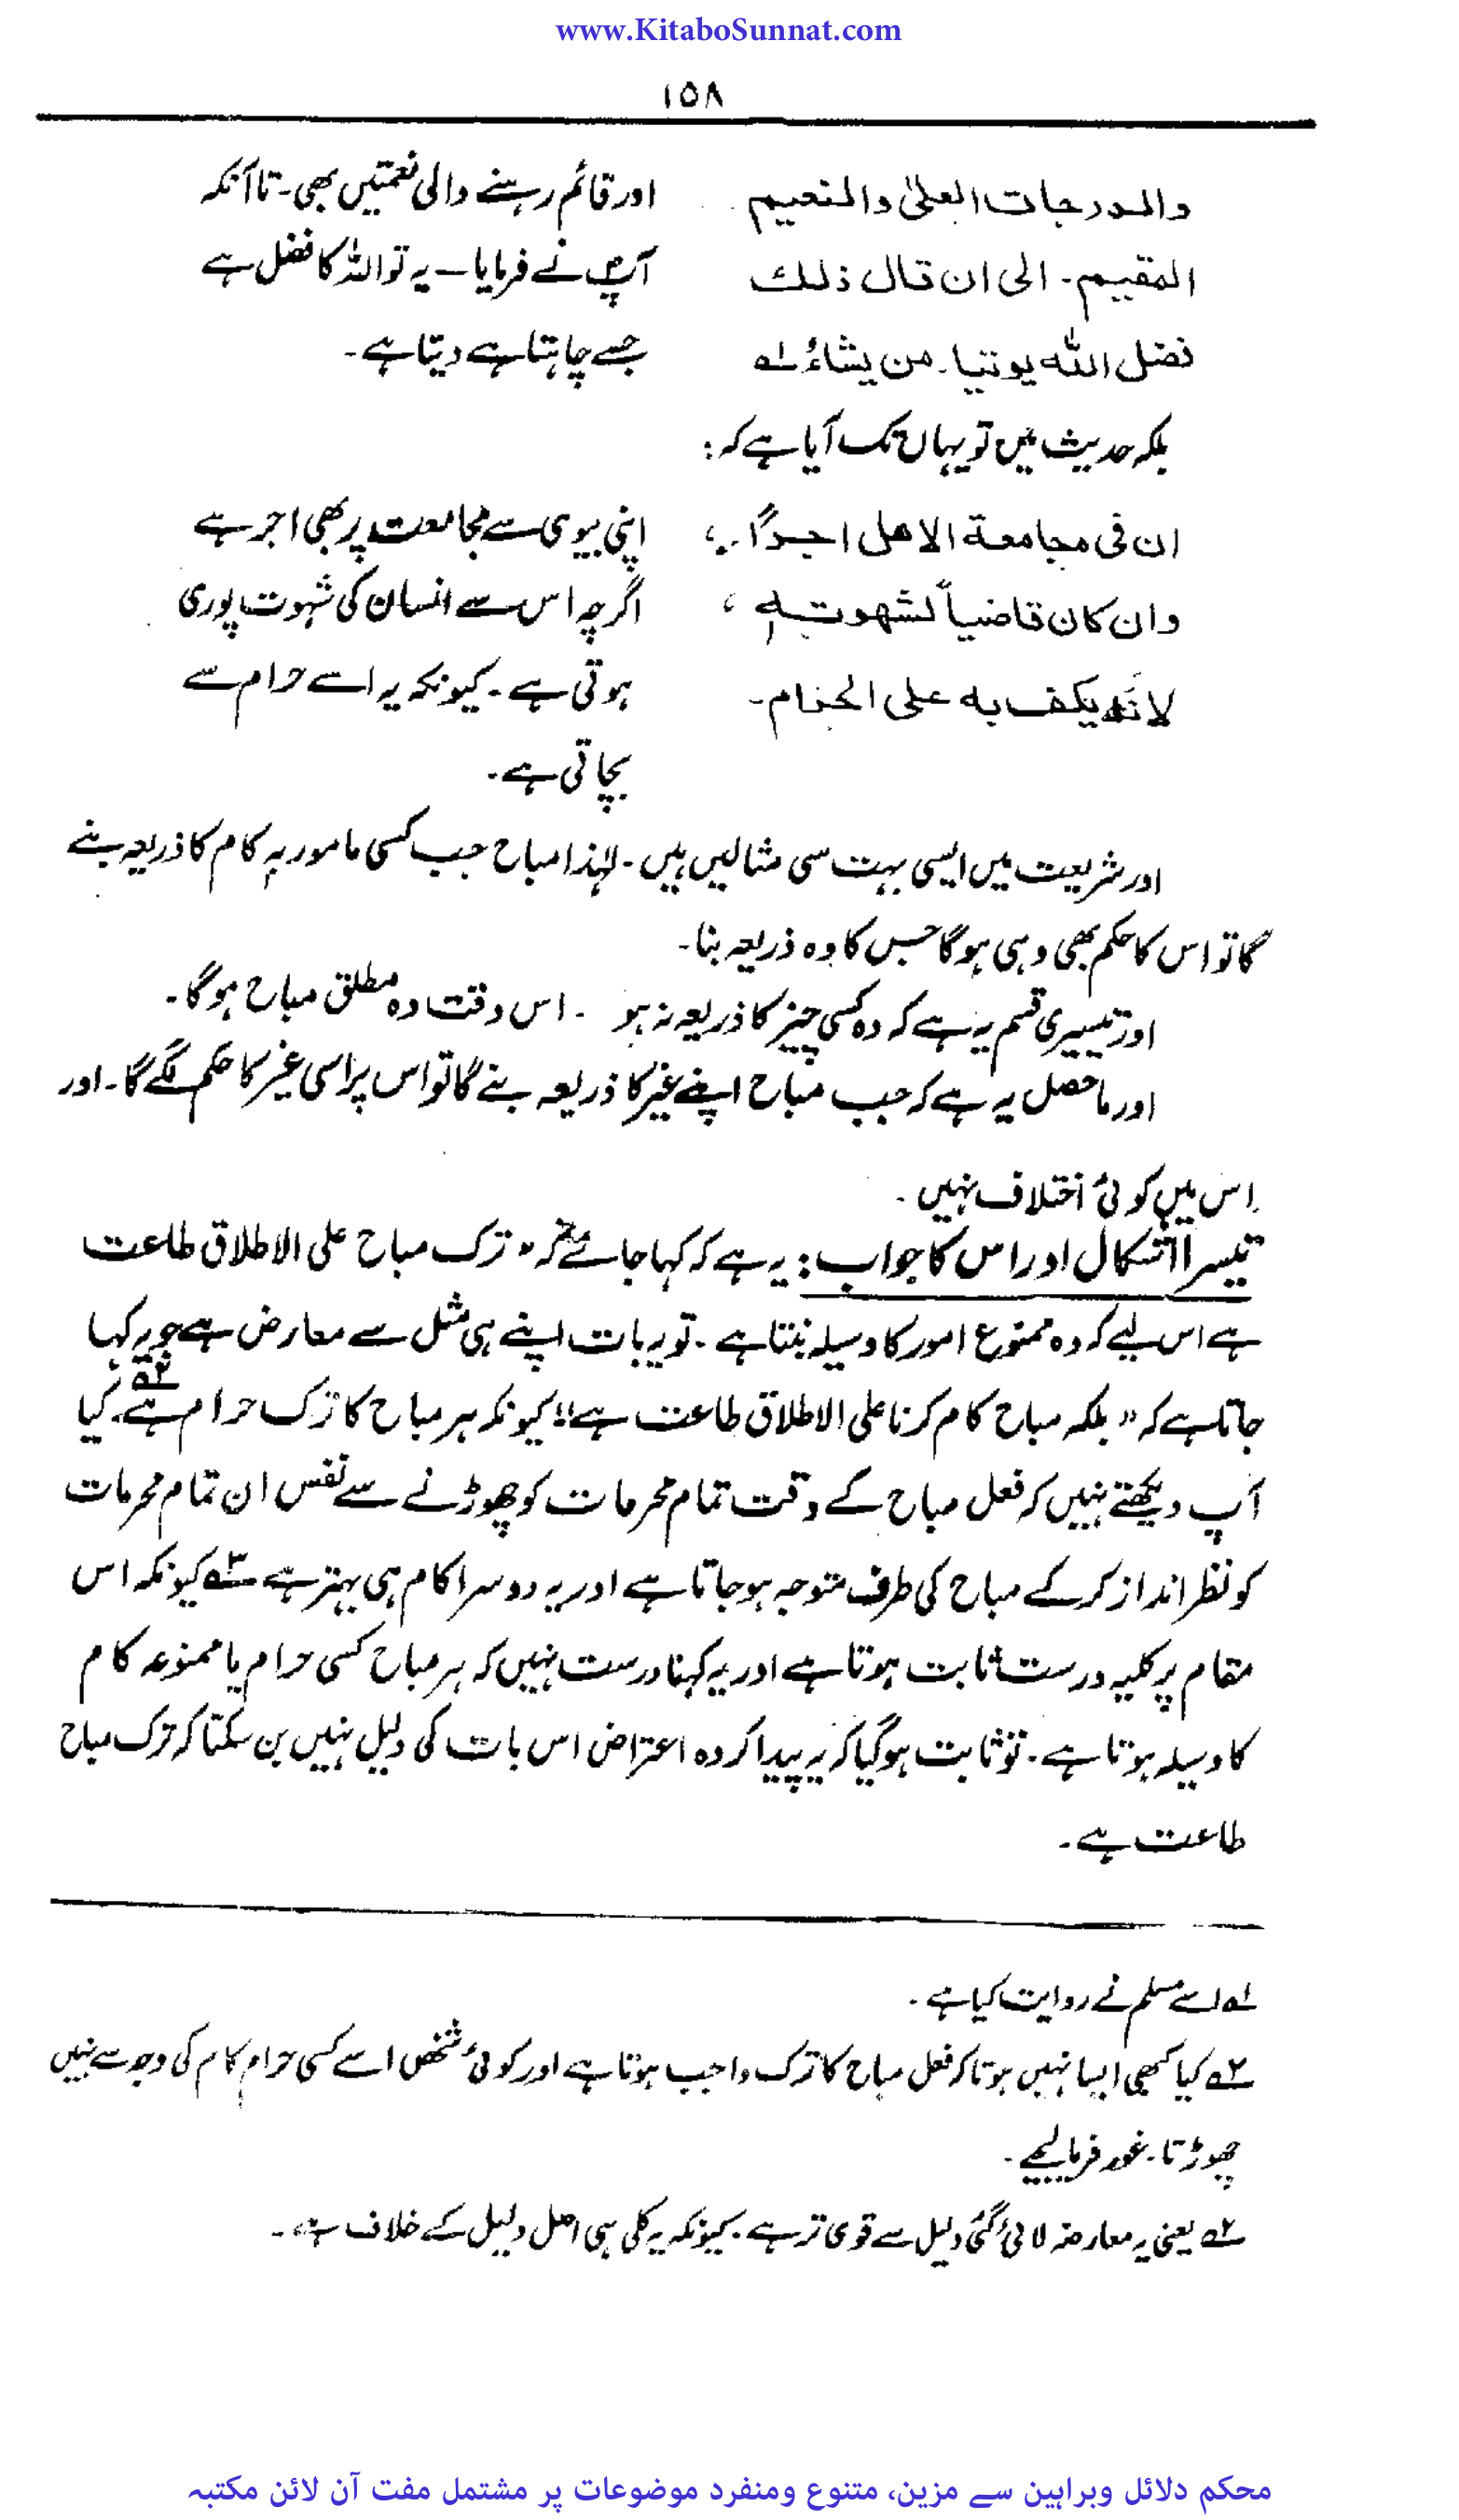 www.KitaboSunnat.com
۱۵۸
والدرجات العلیٰ والنعیم
المقیم۔ الی ان قال ذلك
فضل الله یوتیہ من یشاءُ ؎۱
اور قائم رہنے والی نعمتیں بھی۔ تا آنکہ
آپؐ نے فرمایا۔ یہ تو اللہ کا فضل ہے
جسے چاہتا ہے دیتا ہے۔
بلکہ حدیث میں تو یہاں تک آیا ہے کہ:
ان فی مجامعة الاھل اجراً،
وان کان قاضیاً لشھوتہٖ،
لانّہ یکف بہ علی الحرام۔
اپنی بیوی سے مجامعت پر بھی اجر ہے
اگرچہ اس سے انسان کی شہوت پوری
ہوتی ہے۔ کیونکہ یہ اسے حرام سے
بچاتی ہے۔
اور شریعت میں ایسی بہت سی مثالیں ہیں۔ لہٰذا مباح جب کسی مامور بہٖ کام کا ذریعہ بنے
گا تو اس کا حکم بھی وہی ہوگا جس کا وہ ذریعہ بنا۔
اور تیسری قسم یہ ہے کہ وہ کسی چیز کا ذریعہ نہ ہو ۔ اس وقت وہ مطلق مباح ہوگا۔
اور ماحصل یہ ہے کہ جب مباح اپنے غیر کا ذریعہ بنے گا تو اس پر اسی غیر کا حکم لگے گا۔ اور
اِس میں کوئی اختلاف نہیں۔
تیسرا اشکال اور اس کا جواب: یہ ہے کہ کہا جائے کہ ”ترک مباح علی الاطلاق طاعت
ہے اس لیے کہ وہ ممنوع امور کا وسیلہ بنتا ہے۔ تو یہ بات اپنے ہی مثل سے معارض ہے جو یہ کہا
جاتا ہے کہ ”بلکہ مباح کام کرنا علی الاطلاق طاعت ہے“ کیونکہ ہر مباح کا ترک حرام ہے ؎۲ کیا
آپ دیکھتے نہیں کہ فعل مباح کے وقت تمام محرمات کو چھوڑنے سے نفس ان تمام محرمات
کو نظر انداز کر کے مباح کی طرف متوجہ ہو جاتا ہے اور یہ دوسرا کام ہی بہتر ہے ؎۳ کیونکہ اس
مقام پر کلیہ درست ثابت ہوتا ہے اور یہ کہنا درست نہیں کہ ہر مباح کسی حرام یا ممنوعہ کام
کا وسیلہ ہوتا ہے۔ تو ثابت ہوگیا کہ یہ پیدا کردہ اعتراض اس بات کی دلیل نہیں بن سکتا کہ ترک مباح
طاعت ہے۔
؎۱ اسے مسلم نے روایت کیا ہے۔
؎۲ کیا کبھی ایسا نہیں ہوتا کہ فعل مباح کا ترک واجب ہوتا ہے اور کوئی شخص اسے کسی حرام کام کی وجہ سے نہیں
چھوڑتا۔ غور فرمالیجیے۔
؎۳ یعنی یہ معارضہ لائی گئی دلیل سے قوی تر ہے۔ کیونکہ یہ کلی ہی اصل دلیل کے خلاف ہے۔
محکم دلائل وبراہین سے مزین، متنوع ومنفرد موضوعات پر مشتمل مفت آن لائن مکتبہ